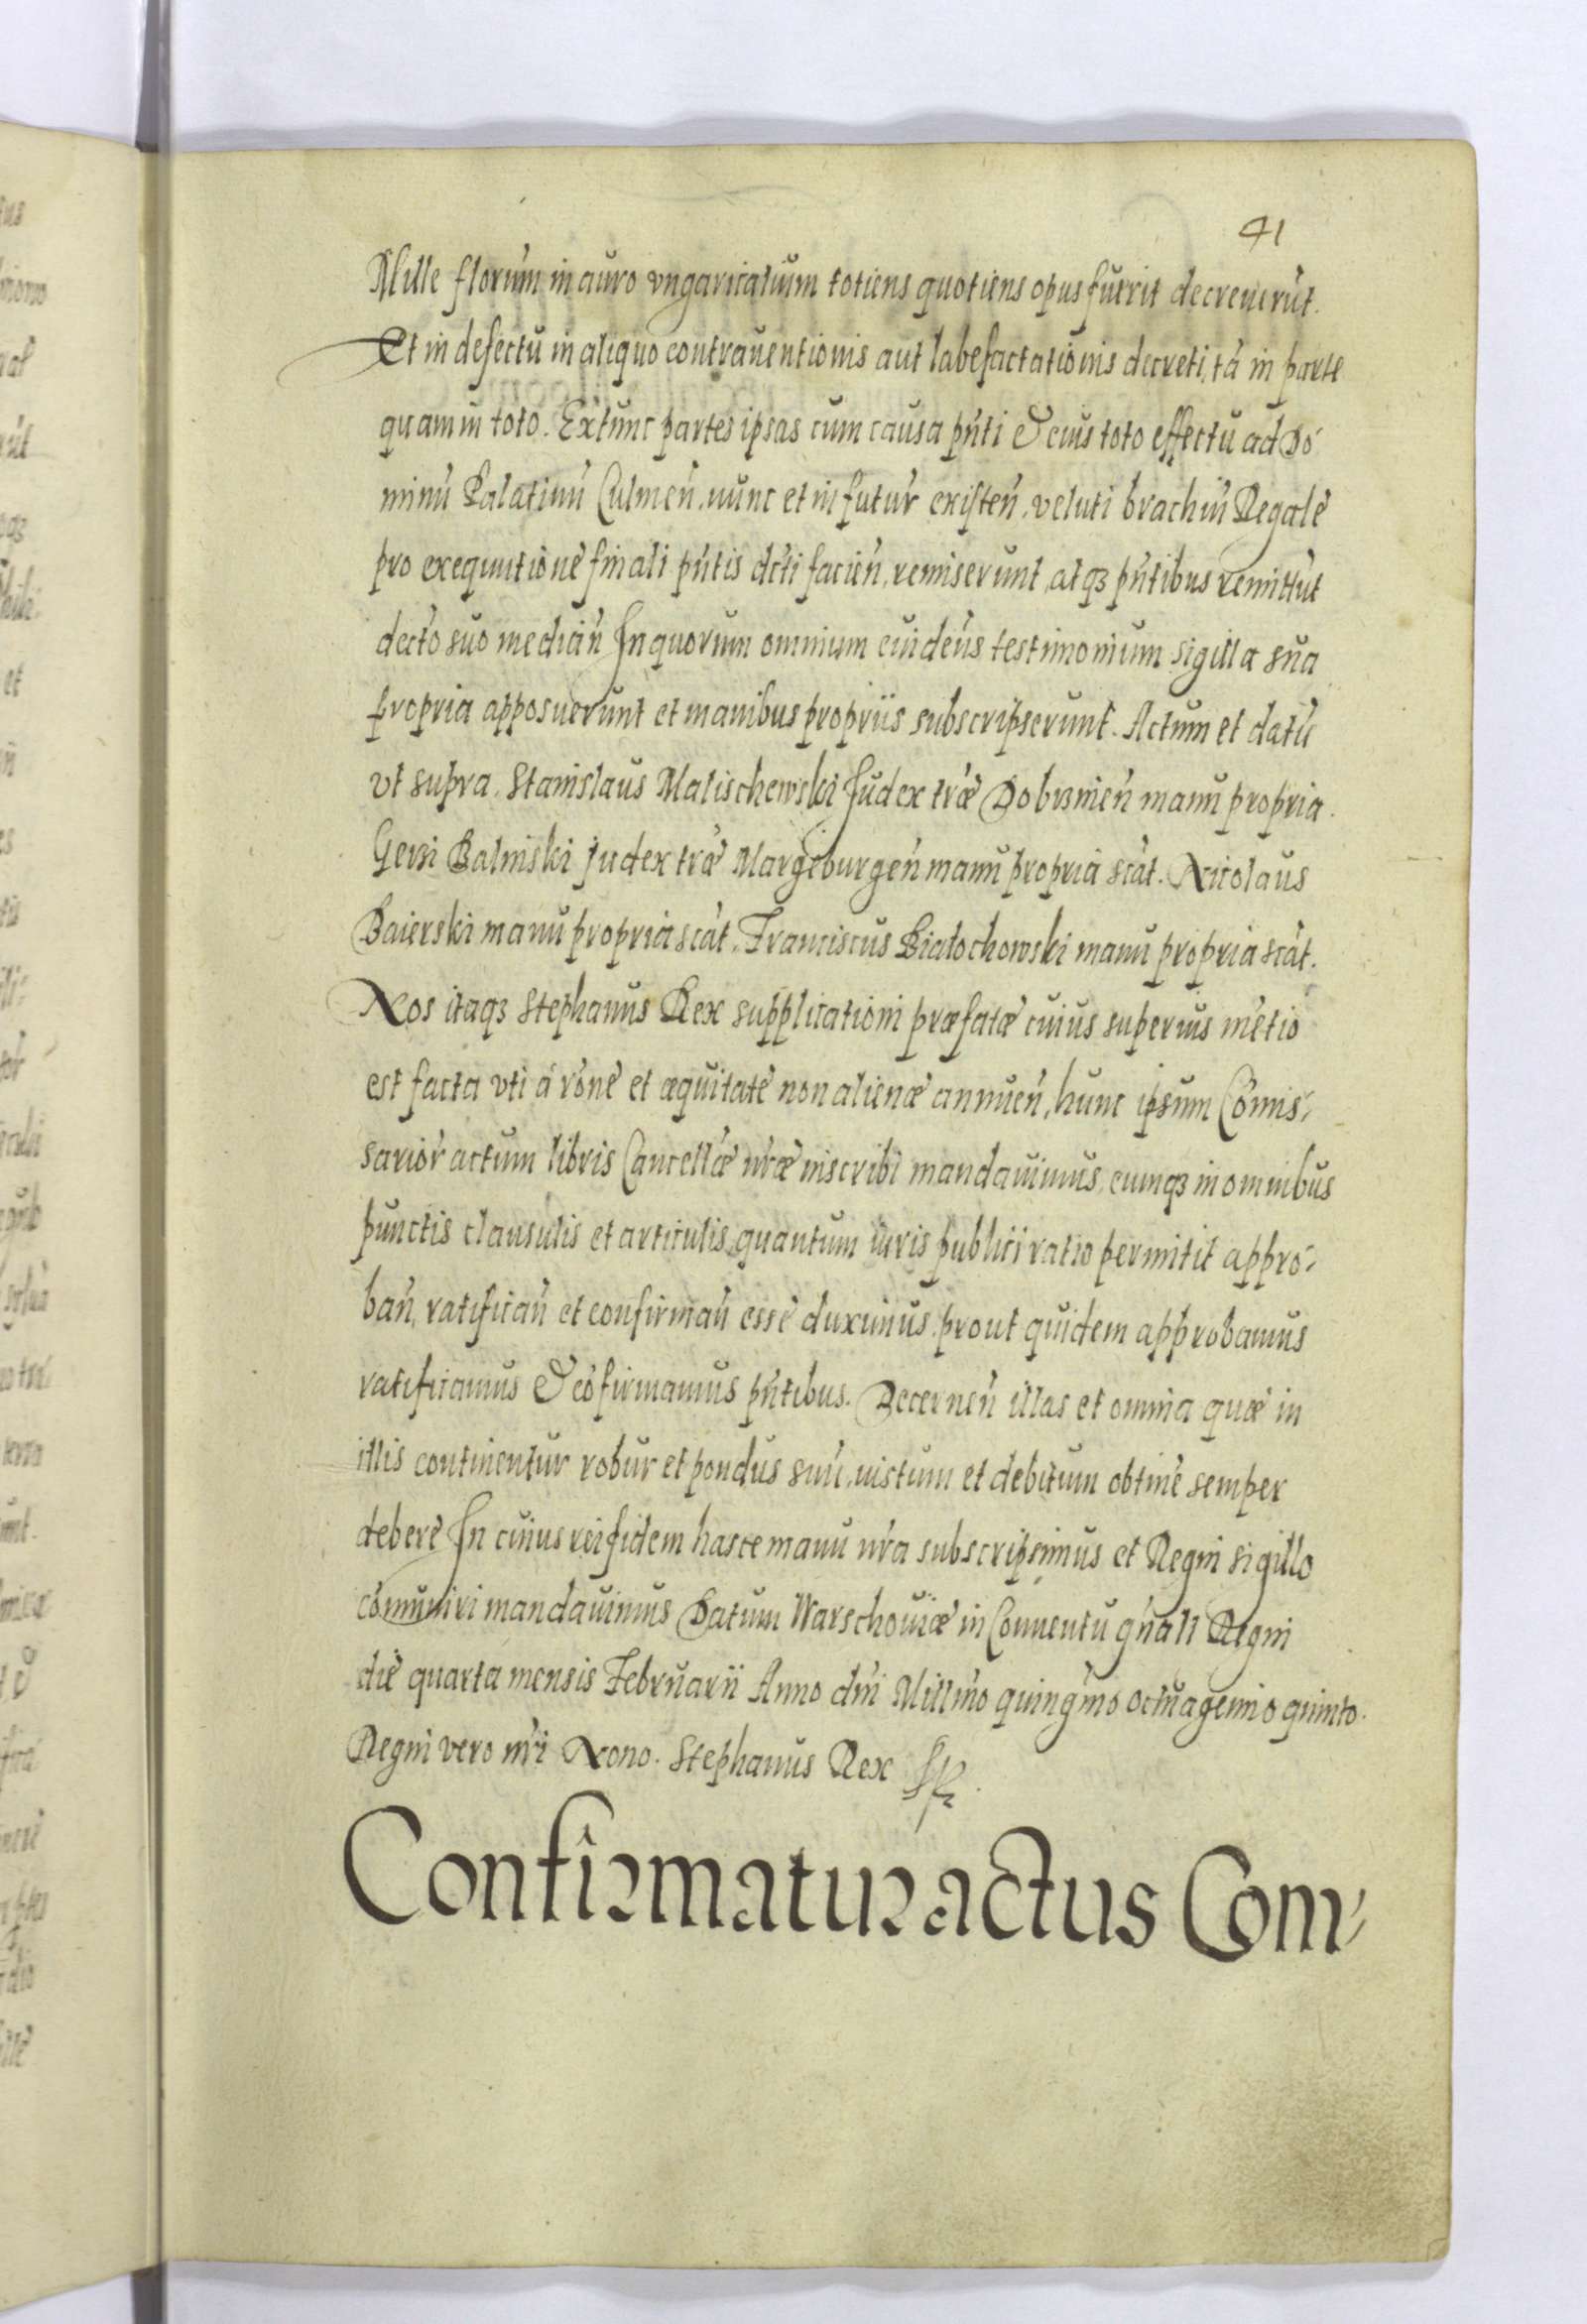 41
Mille florũm in auro vngaricalium totiens quotiens opus fuerit decreuerũt.
Et in defectũ in aliquo contrauentionis aut labefactationis decreti, tã in parte
quam in toto. Extunc partes ipsas cum causa pñti & eius toto effectu ad Do
minũ Palatinũ Culmeñ. nunc et in futur̃ existeñ, veluti brachiũ Regale
pro exequutione finali pñtis dcti facieñ, remiserunt, atqꝫ pñtibus remittũt
decto suo medicañ In quorum omnium euideñs testimonium sigilla sua
propria apposuerunt et manibus propriis subscripserunt. Actum et datũ
vt supra. Stanislaus Malischewski Judex træ Dobrineñ manu propria.
Gersi Balinski Judex træ Margeburgeñ manu propria scãt. Nicolaus
Baierski manu propria scãt. Franciscus Białochowski manu propria scãt.
Nos itaqꝫ Stephanus Rex supplicationi præfatæ cuius superius mẽtio
est facta vti á rõne et æquitate non alienæ annueñ, hunc ipsum Cõmis⸗
sarior̃ actum libris Cancellæ nr̃æ inscribi mandauimus, eumqꝫ in omnibus
punctis clausulis et articulis, quantum iuris publici ratio permitit appro⸗
bañ, ratificañ et confirmañ esse duximus, prout quidem approbamus
ratificamus & cõfirmamus pñtibus. Decerneñ illas et omnia quæ in
illis continentur robur et pondus suũ, iustum et debitum obtine semper
debere In cuius rei fidem hasce manu nr̃a subscripsimus et Regni sigillo
cõmuniri mandauimus Datum Warschouiæ in Conuentu gñali Regni
die quarta mensis Februarii Anno dñi Millm̃o quingm̃o octuagemio quinto.
Regni vero nr̃i Nono. Stephanus Rex
Confirmatur actus Com⸗